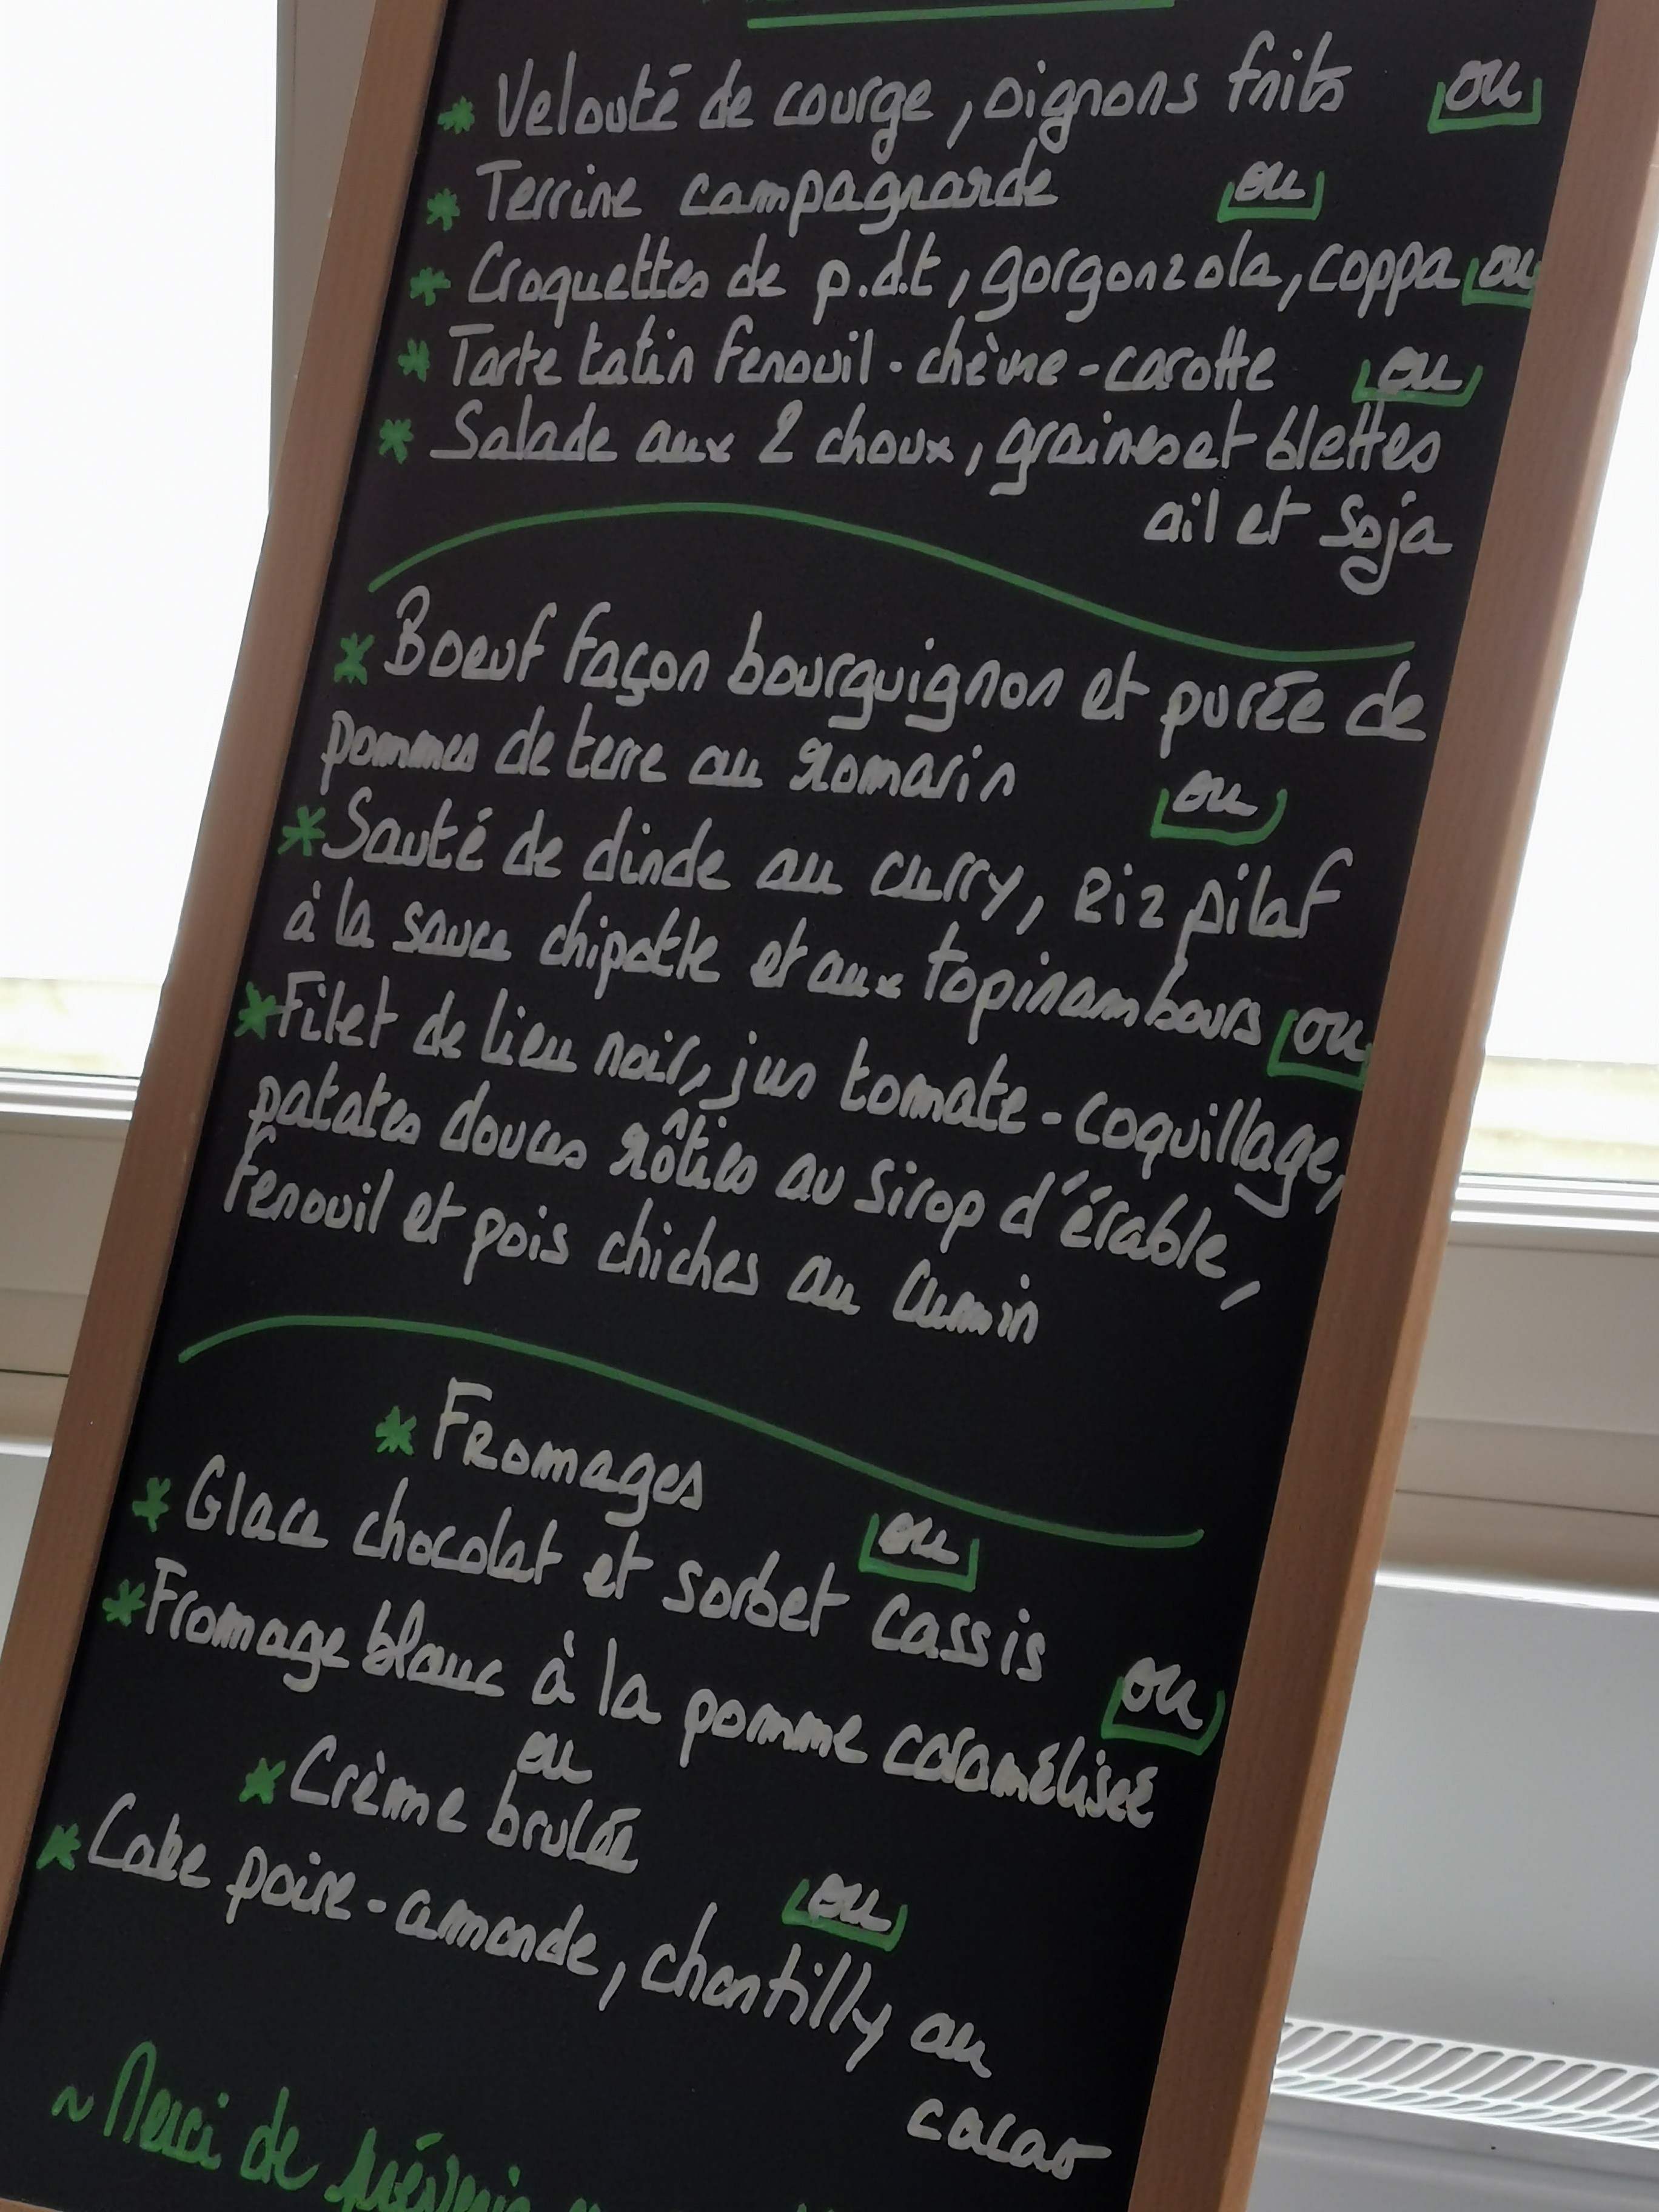 * Velouté de courge, oignons frits ou
* Terrine campagnarde ou
* Croquettes de p.d.t, gorgonzola, coppa ou
* Tarte tatin fenouil - chèvre - carotte ou
* Salade aux 2 choux, graines et blettes
ail et soja
* Boeuf façon bourguignon et purée de
pommes de terre au romarin ou
* Sauté de dinde au curry, riz pilaf
à la sauce chipotle et aux topinambours ou
* Filet de lieu noir, jus tomate - coquillage,
patates douces rôties au sirop d'érable,
fenouil et pois chiches au cumin
* Fromages ou
* Glace chocolat et sorbet cassis ou
* Fromage blanc à la pomme caramélisée
ou
* Crème brulée ou
* Cake poire - amande, chantilly au
cacao
~ Merci de prévenir